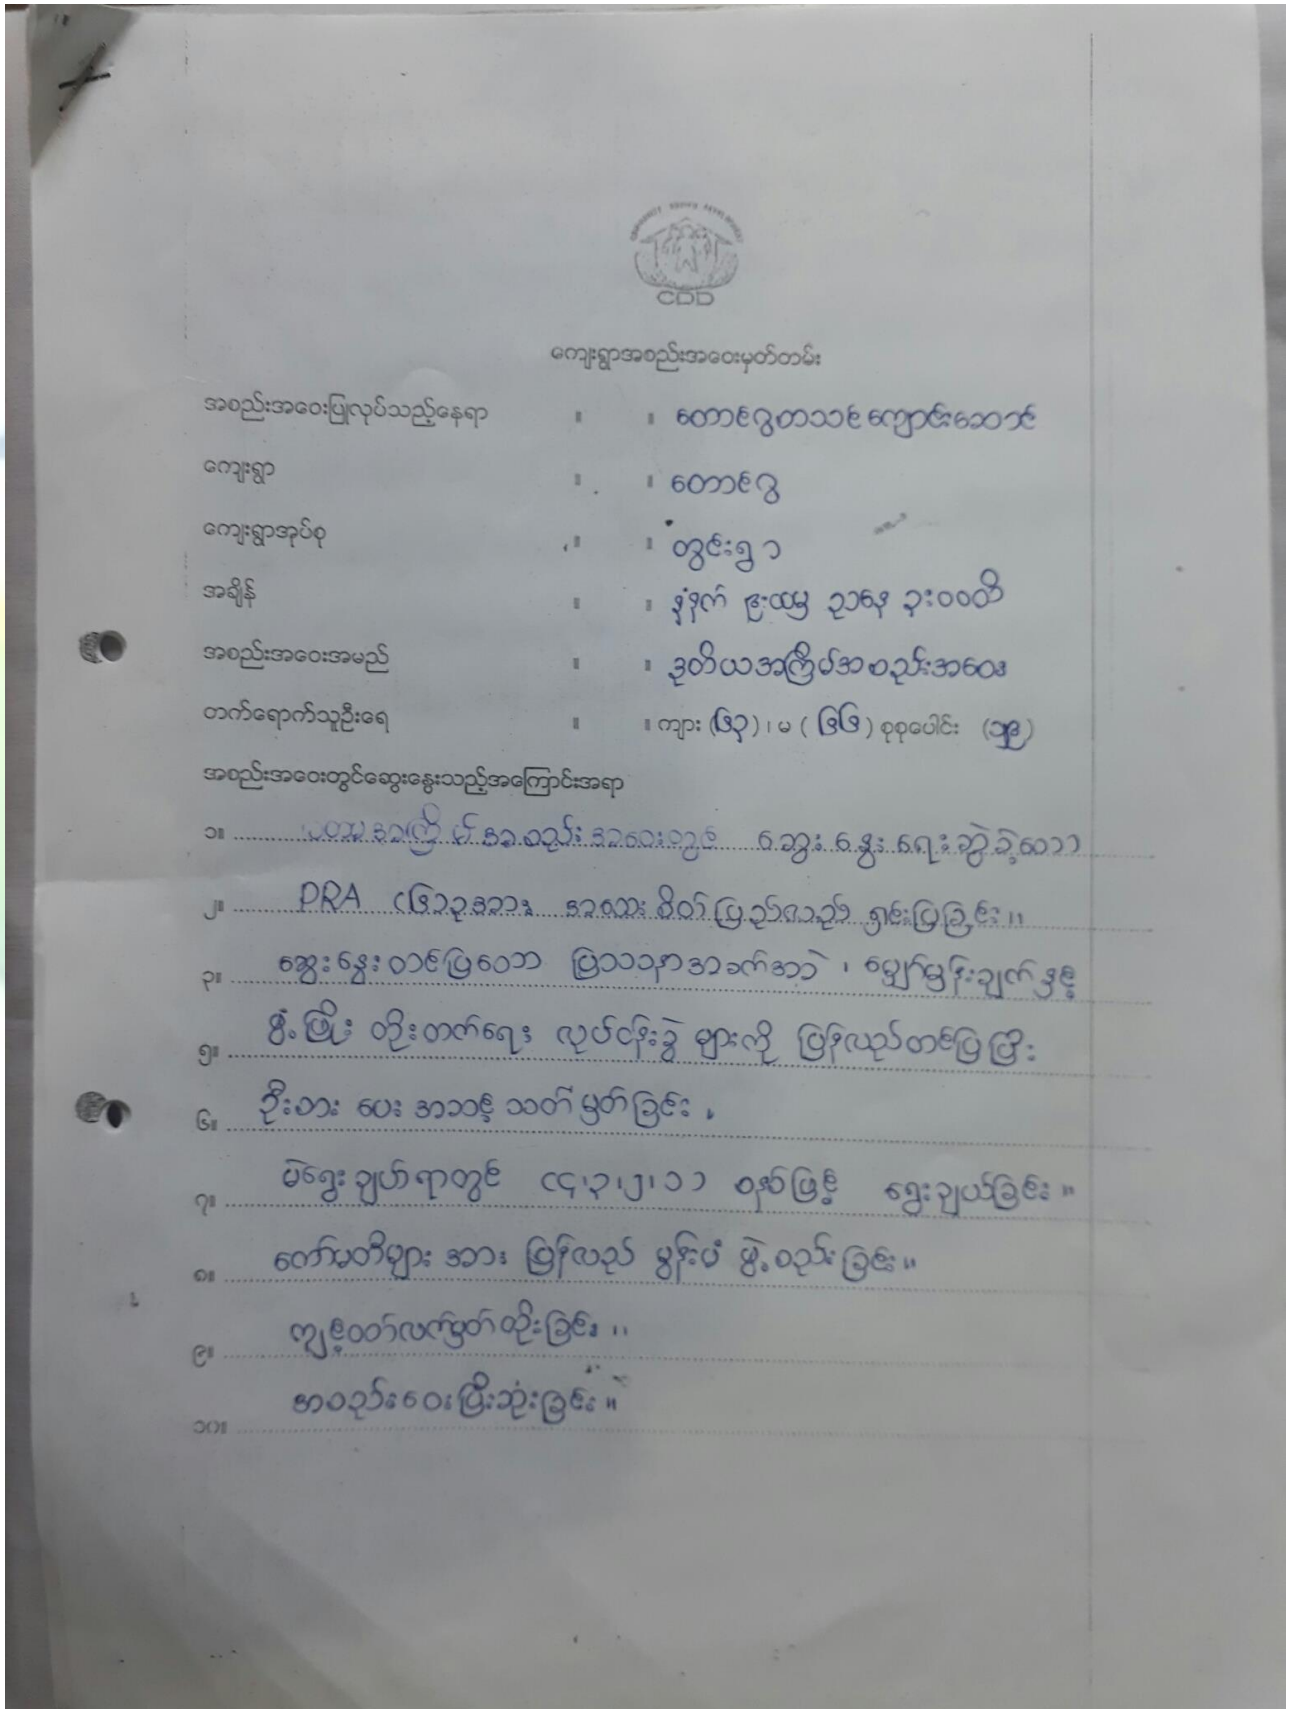 COMMUNITY DRIVEN DEVELOPMENT
CDD
ကျေးရွာအစည်းအဝေးမှတ်တမ်း
အစည်းအဝေးပြုလုပ်သည့်နေရာ ။ ။ တောင်ဂွတသင်ကျောင်းဆောင်
ကျေးရွာ ။ ။ တောင်ဂွ
ကျေးရွာအုပ်စု ။ ။ တွင်းရွာ
အချိန် ။ ။ နံနက် ၉းထမှ ညနေ ၃းဝဝထိ
အစည်းအဝေးအမည် ။ ။ ဒုတိယအကြိမ်အစည်းအဝေး
တက်ရောက်သူဦးရေ ။ ။ ကျား (၆၃) ၊ မ ( ၆၆ ) စုစုပေါင်း
အစည်းအဝေးတွင်ဆွေးနွေးသည့်အကြောင်းအရာ
၁။ ပထမအကြိမ်အစည်းအဝေးတွင် ဆွေးနွေးရေးဆွဲခဲ့သော
၂။ PRA အား အသေးစိတ်ပြန်လည် ရှင်းပြခြင်း။
၃။ ဆွေးနွေးတင်ပြသော ပြဿနာအခက်အခဲ ၊ မျှော်မှန်းချက်နှင့်
၅။ ဖွံ့ဖြိုး တိုးတက်ရေး လုပ်ငန်းခွဲ များကို ပြန်လည်တင်ပြပြီး
၆။ ဦးစား ပေး အဆင့် သတ်မှတ်ခြင်း ။
၇။ မဲရွေးချယ်ရာတွင် (၄၊၃၊၂၊၁) စနစ်ဖြင့် ရွေးချယ်ခြင်း ။
၈။ ကော်မတီများ အား ပြန်လည် မွမ်းမံ ဖွဲ့စည်းခြင်း။
၉။ ကျင့်ဝတ်လက်မှတ်ထိုးခြင်း ။
၁၀။ အစည်းဝေးပြီးဆုံးခြင်း ။